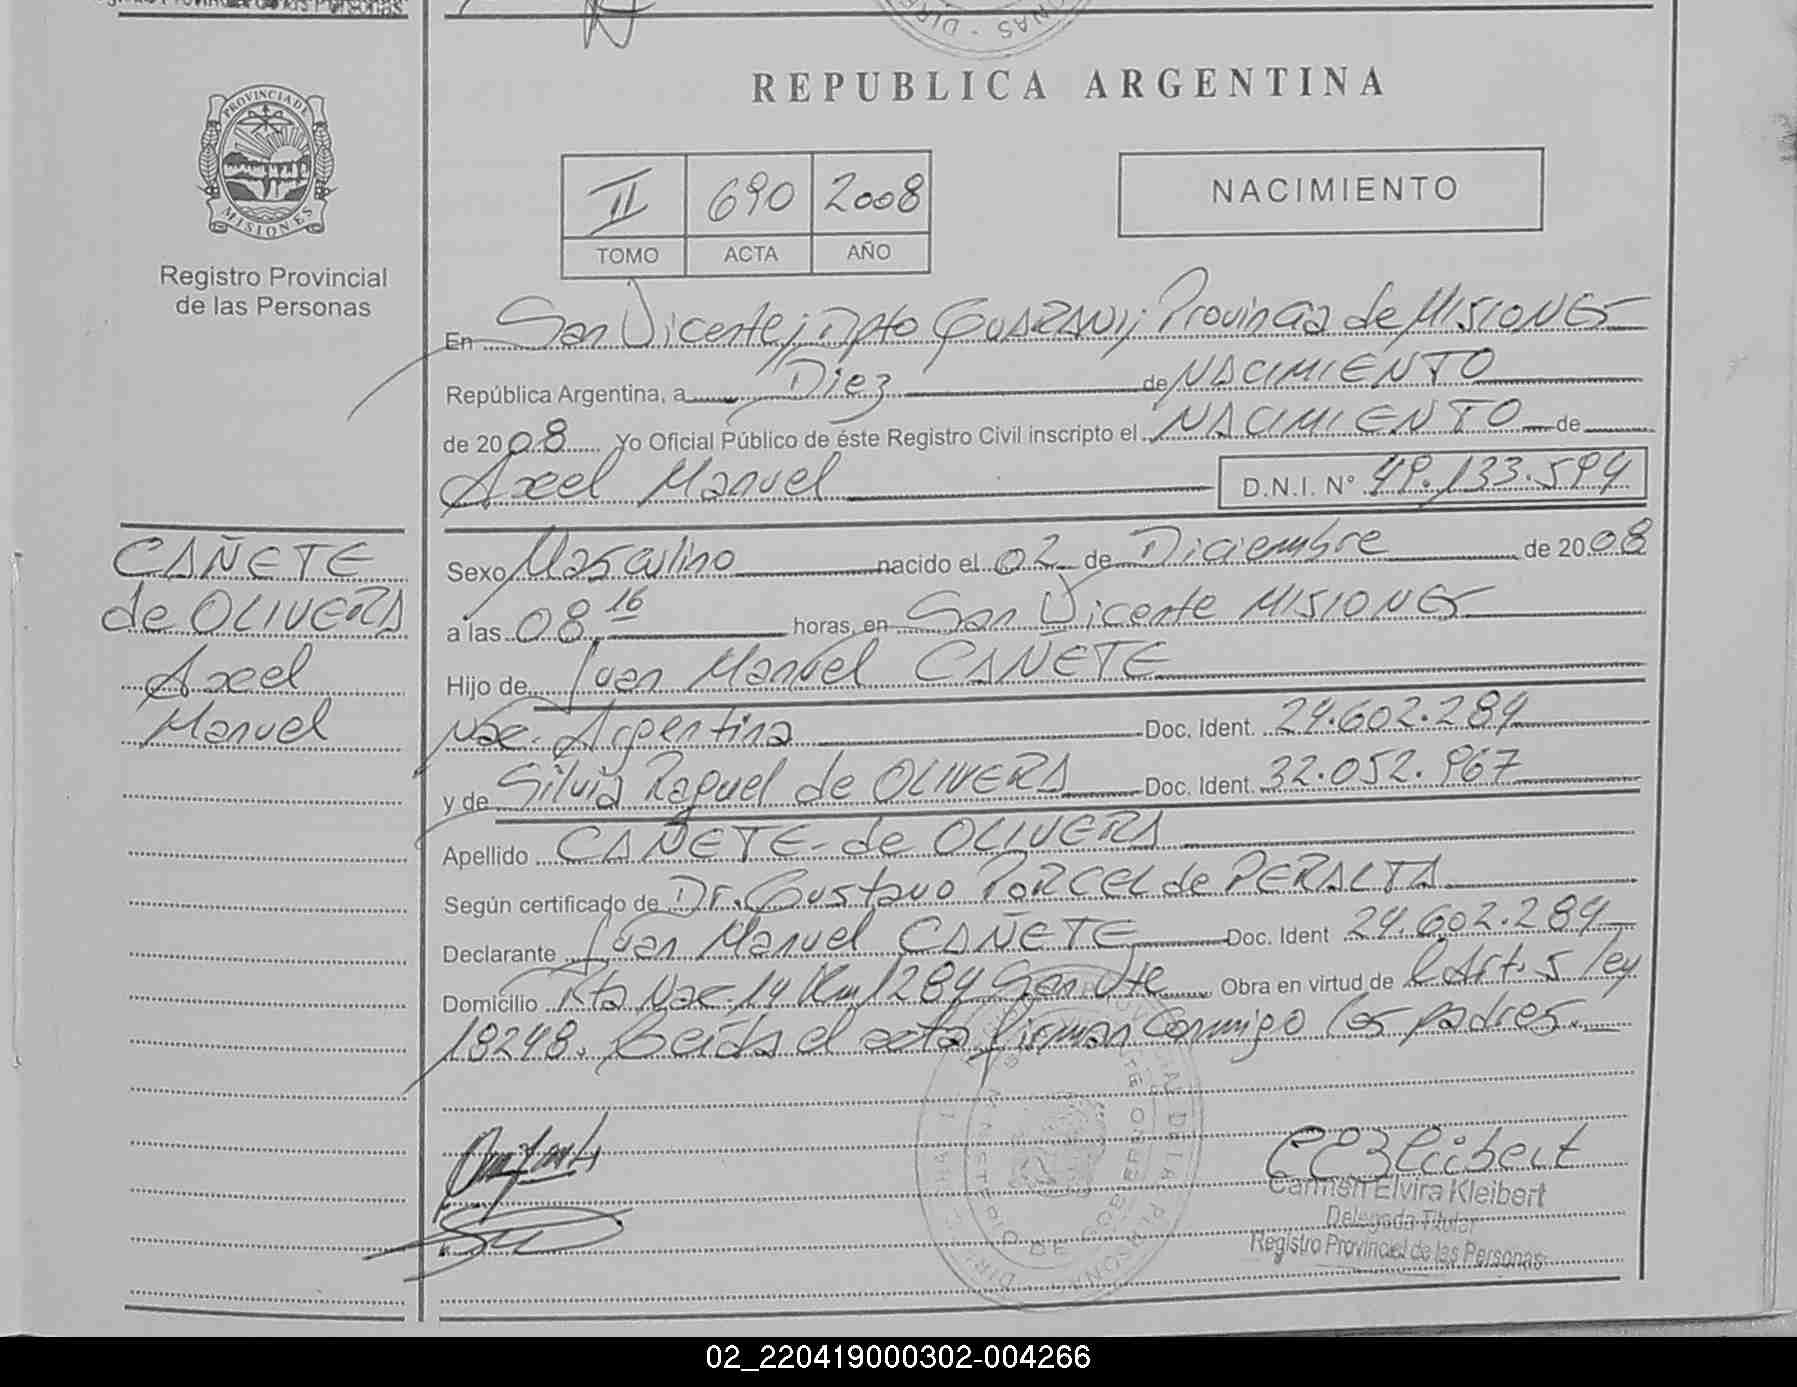 REPUBLICA ARGENTINA
PROVINCIA DE
MISIONES
Registro Provincial
de las Personas
II 690 2008
TOMO ACTA AÑO
NACIMIENTO
En San Vicente, Dpto GUARANI, Provincia de MISIONES
República Argentina, a Diez de NACIMIENTO
de 2008 Yo Oficial Público de éste Registro Civil inscripto el NACIMIENTO de
Axel Manuel D.N.I. N° 49.133.594
CAÑETE
de OLIVERA
Axel
Manuel
Sexo Masculino nacido el 02 de Diciembre de 2008
a las 08,16 horas, en San Vicente MISIONES
Hijo de Juan Manuel CAÑETE
Nac. Argentina Doc. Ident. 24.602.284
y de Silvia Raquel de OLIVERA Doc. Ident. 32.052.967
Apellido CAÑETE - de OLIVERA
Según certificado de Dr. Gustavo PORCEL de PERALTA
Declarante Juan Manuel CAÑETE Doc. Ident 24.602.284
Domicilio Rta Nac. 14 Km 1284 San Vte Obra en virtud de l Art. 5 ley
18248. Leída el acta firman conmigo los padres.
Carmen Elvira Kleibert
Delegada Titular
Registro Provincial de las Personas
02_220419000302-004266